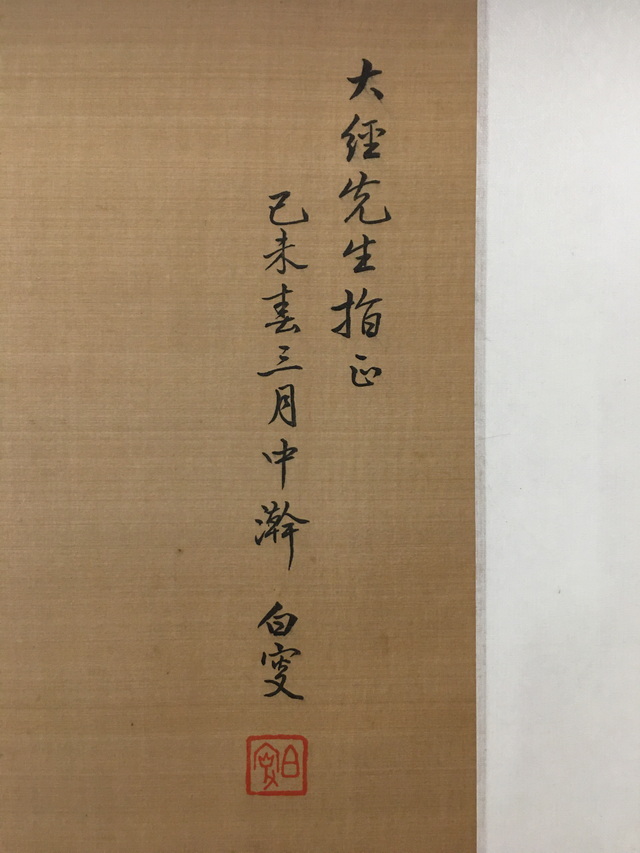 大經先生指正
己未春三月中澣 白
白